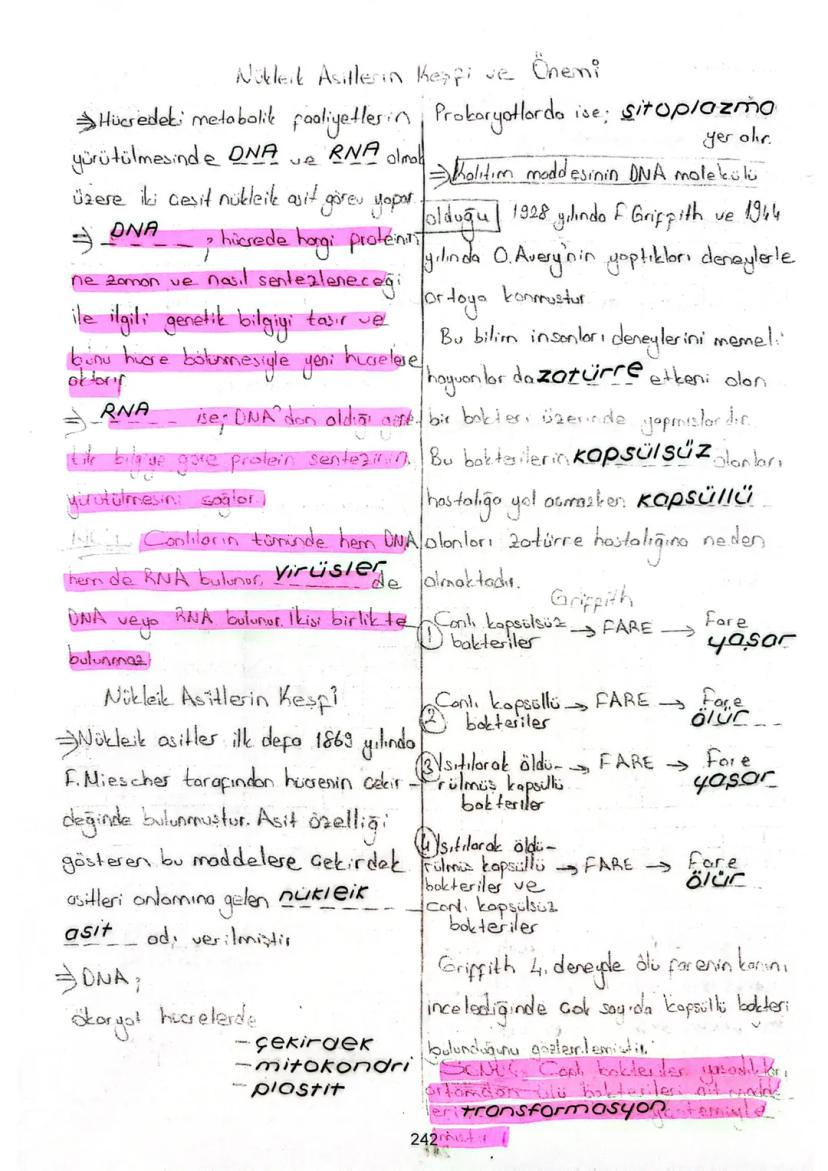 Nükleik Asitlerin Keşfi ve Önemi
⇒Hücredeki metabolik faaliyetlerin
yürütülmesinde DNA ve RNA olmak
üzere iki çeşit nükleik asit görev yapar.
⇒ DNA, hücrede hangi proteinin
ne zaman ve nasıl sentezleneceği
ile ilgili genetik bilgiyi taşır ve
bunu hücre bölünmesiyle yeni hücrelere
aktarır.
⇒ RNA ise; DNA'dan aldığı gene-
tik bilgiye göre protein sentezinin
yürütülmesini sağlar.
Canlıların tümünde hem DNA
hem de RNA bulunur, virüsler de
DNA veya RNA bulunur. İkisi birlikte
bulunmaz
Nükleik Asitlerin Keşfi
⇒Nükleik asitler ilk defa 1869 yılında
F. Miescher tarafından hücrenin çekir-
değinde bulunmuştur. Asit özelliği
gösteren bu maddelere çekirdek
asitleri anlamına gelen nükleik
asit adı verilmiştir
⇒DNA;
ökaryot hücrelerde
-çekirdek
-mitokondri
-plastit
Prokaryotlarda ise; sitoplazma
yer alır.
⇒Kalıtım maddesinin DNA molekülü
olduğu 1928 yılında F Griffith ve 1944
yılında O. Avery'nin yaptıkları deneylerle
ortaya konmuştur
Bu bilim insanları deneylerini memeli
hayvanlar da zatürre etkeni olan
bir bakteri üzerinde yapmışlardır.
Bu bakterilerin kapsülsüz olanları
hastalığa yol açmazken kapsüllü
olanları zatürre hastalığına neden
olmaktadır.
Griffith
1 Canlı kapsülsüz bakteriler → FARE → Fare yaşar
2 Canlı kapsüllü bakteriler → FARE → Fare ölür
3 Isıtılarak öldü- → FARE → Fare
rülmüş kapsüllü yaşar
bakteriler
4 Isıtılarak öldü-
rülmüş kapsüllü → FARE → Fare
bakteriler ve ölür
canlı kapsülsüz
bakteriler
Griffith 4. deneyde ölü farenin kanını
incelediğinde çok sayıda kapsüllü bakteri
bulunduğunu gözlemlemiştir.
Canlı bakteriler yaşadıkları
ortamdan ölü bakterileri ait madde
leri transformasyon yöntemiyle
242